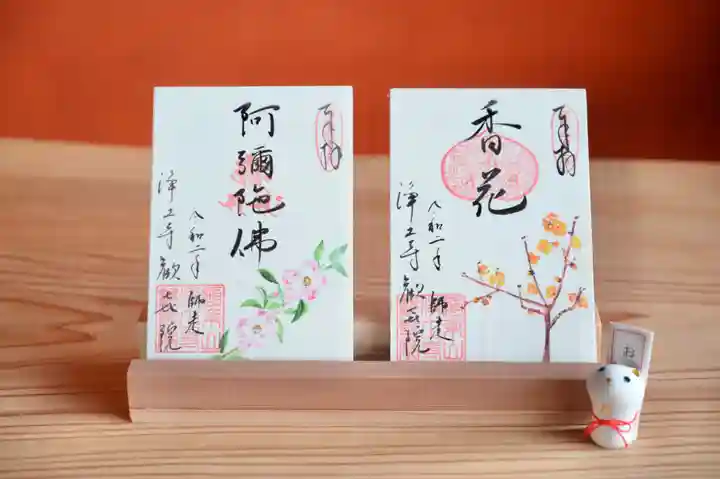 奉拝
阿彌陀佛
令和二年 師走
浄土寺 歓喜院
奉拝
香花
令和二年 師走
浄土寺 歓喜院
お